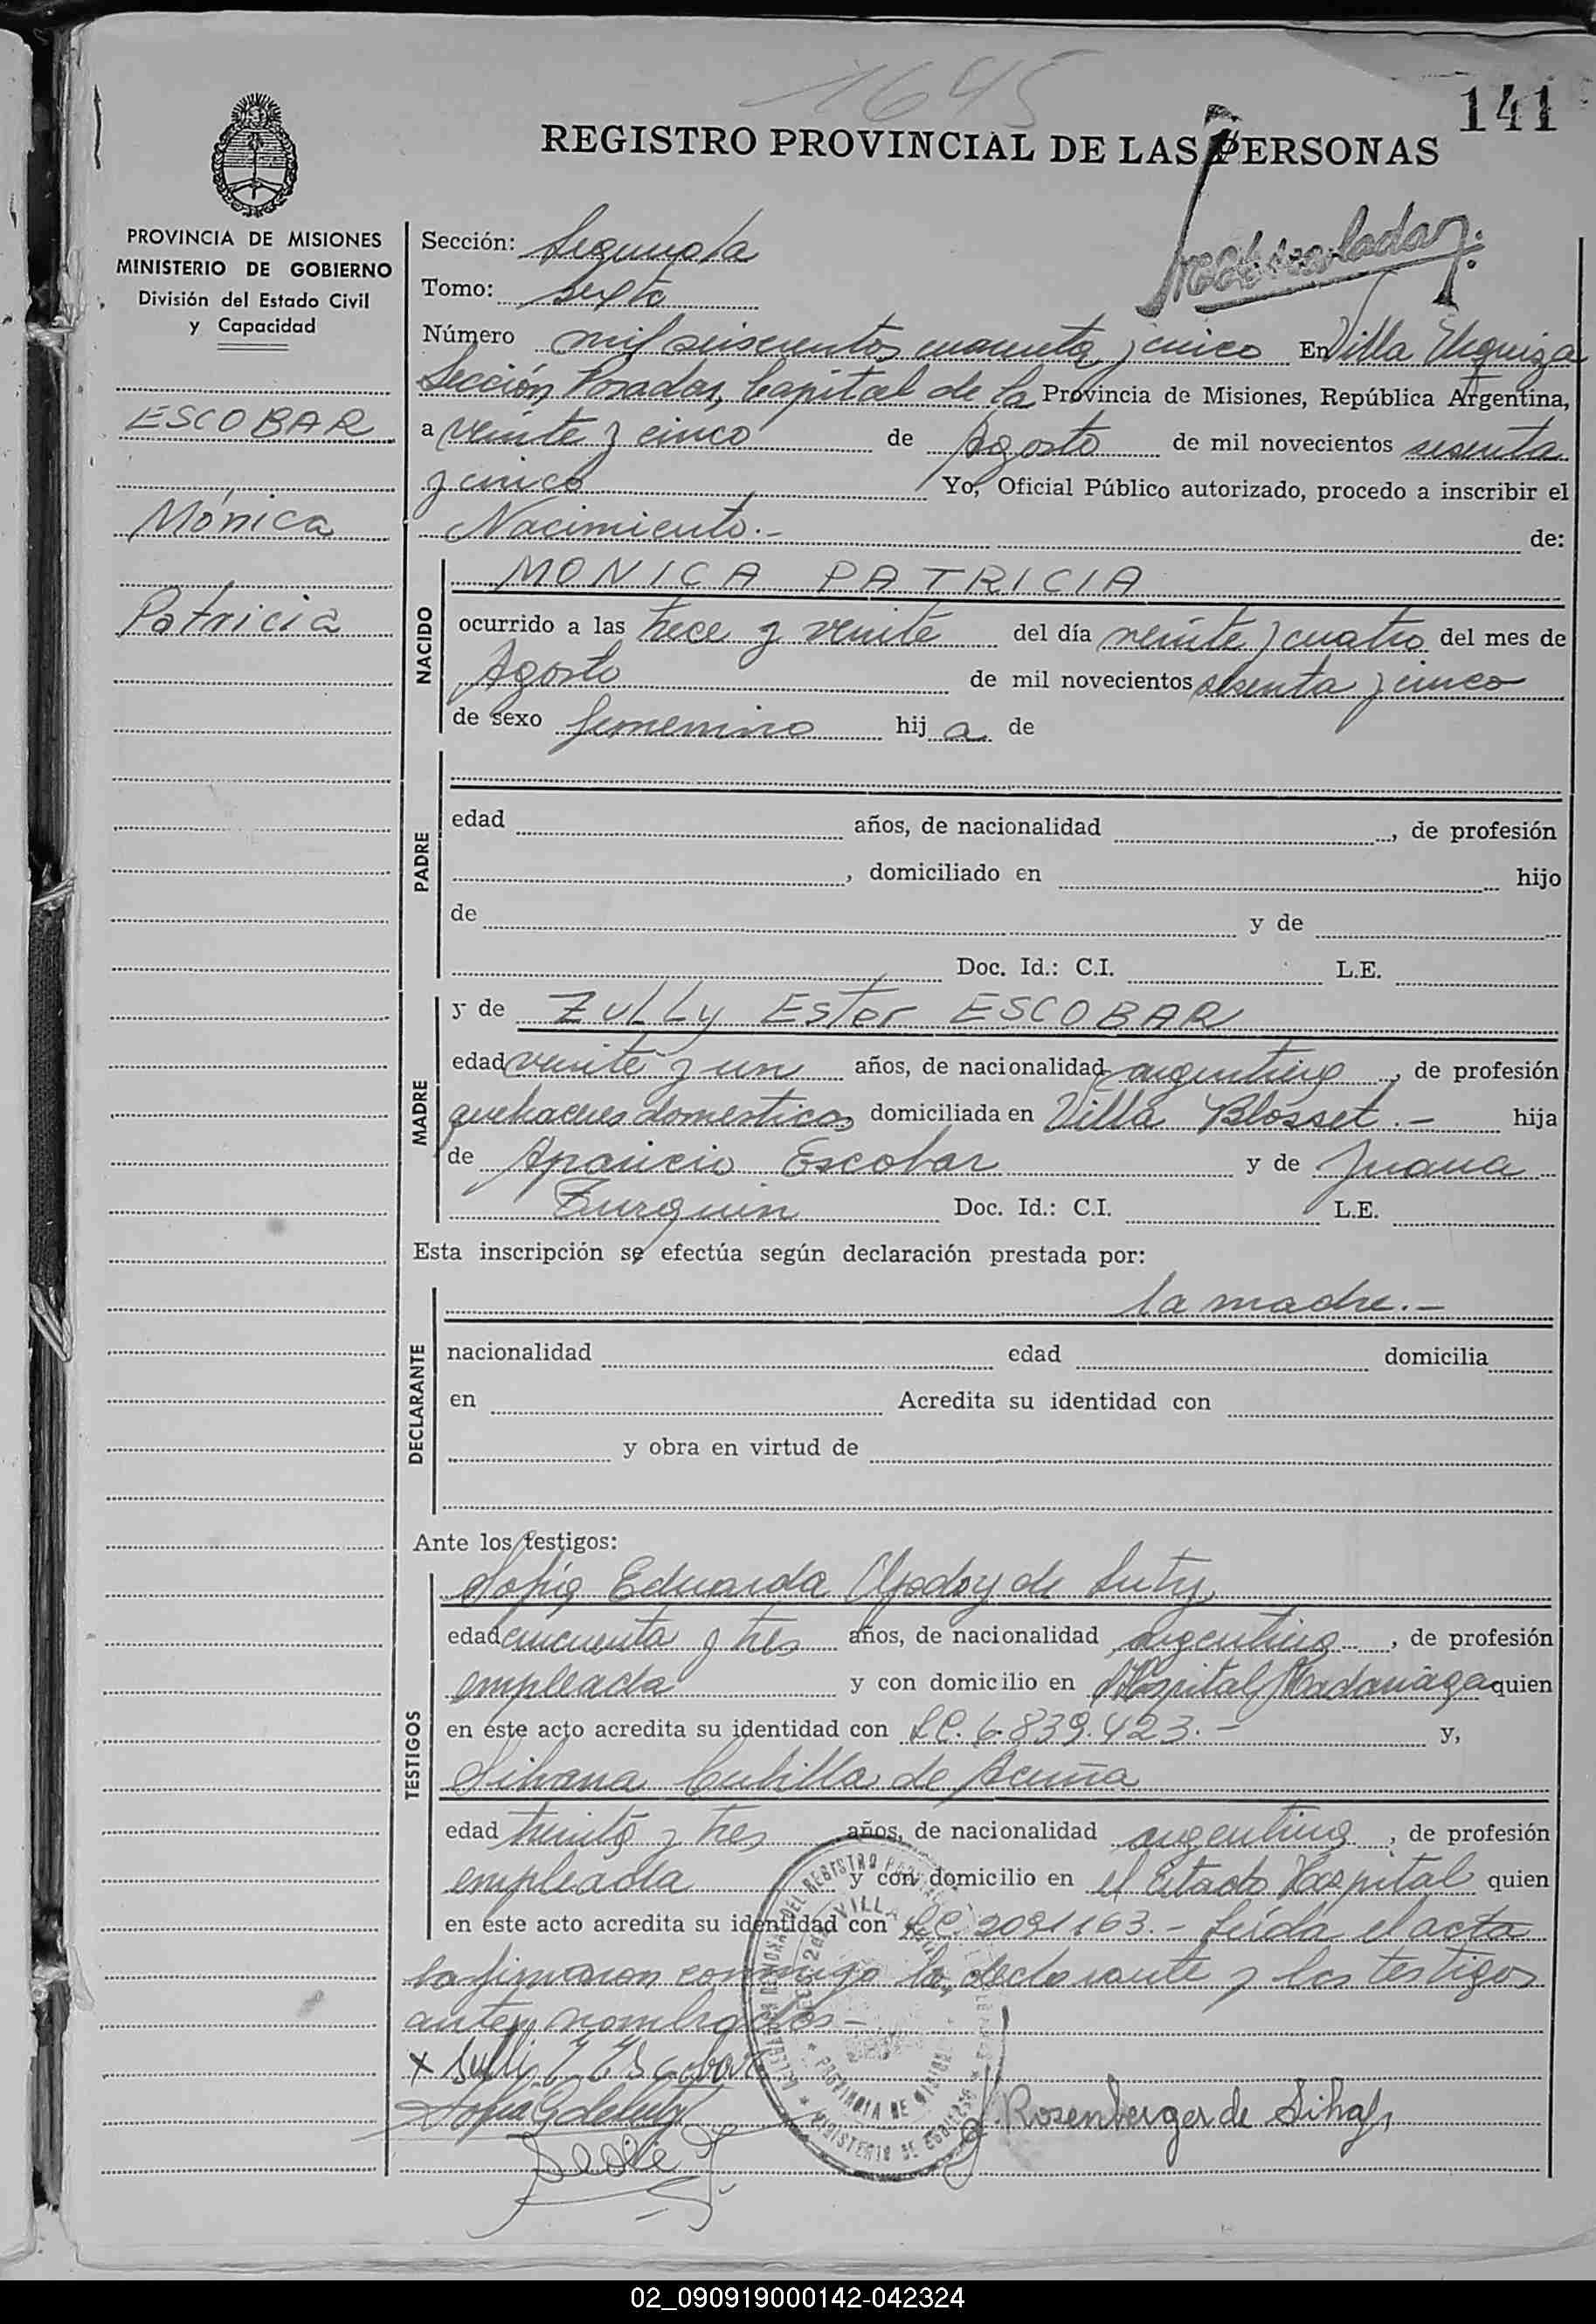 1645
141
REGISTRO PROVINCIAL DE LAS PERSONAS
PROVINCIA DE MISIONES
MINISTERIO DE GOBIERNO
División del Estado Civil
y Capacidad
ESCOBAR
Mónica
Patricia
Sección: Segunda
Tomo: sexto
Número mil seiscientos cuarenta y cinco En Villa Urquiza
Sección Posadas, Capital de la Provincia de Misiones, República Argentina,
a veinte y cinco de Agosto de mil novecientos sesenta
y cinco Yo, Oficial Público autorizado, procedo a inscribir el
Nacimiento.- de:
NACIDO
MONICA PATRICIA
ocurrido a las trece y veinte del día veinte y cuatro del mes de
Agosto de mil novecientos sesenta y cinco
de sexo femenino hij a de
PADRE
edad años, de nacionalidad , de profesión
, domiciliado en hijo
de y de
Doc. Id.: C.I. L.E.
MADRE
y de ZULLy Ester ESCOBAR
edad veinte y un años, de nacionalidad argentina, de profesión
quehaceres domesticos domiciliada en Villa Blosset.- hija
de Aparicio Escobar y de Juana
Zurquin Doc. Id.: C.I. L.E.
Esta inscripción se efectúa según declaración prestada por:
DECLARANTE
la madre.-
nacionalidad edad domicilia
en Acredita su identidad con
y obra en virtud de
Ante los testigos:
TESTIGOS
Sofia Eduarda de
edad cincuenta y tres años, de nacionalidad argentina, de profesión
empleada y con domicilio en Hospital Madariaga quien
en este acto acredita su identidad con L.C. 6.839.423.- y,
Silvana Cubilla de Acuña
edad treinta y tres años, de nacionalidad argentina, de profesión
empleada y con domicilio en el Citado Hospital quien
en este acto acredita su identidad con L.C. 2091163.- Leída el acta
la firmaron conmigo la declarante y los testigos
antes nombrados-
x Sulli E Escobar
Rosenberger de
PROVINCIA DE MISIONES
MINISTERIO DE GOBIERNO
02_090919000142-042324